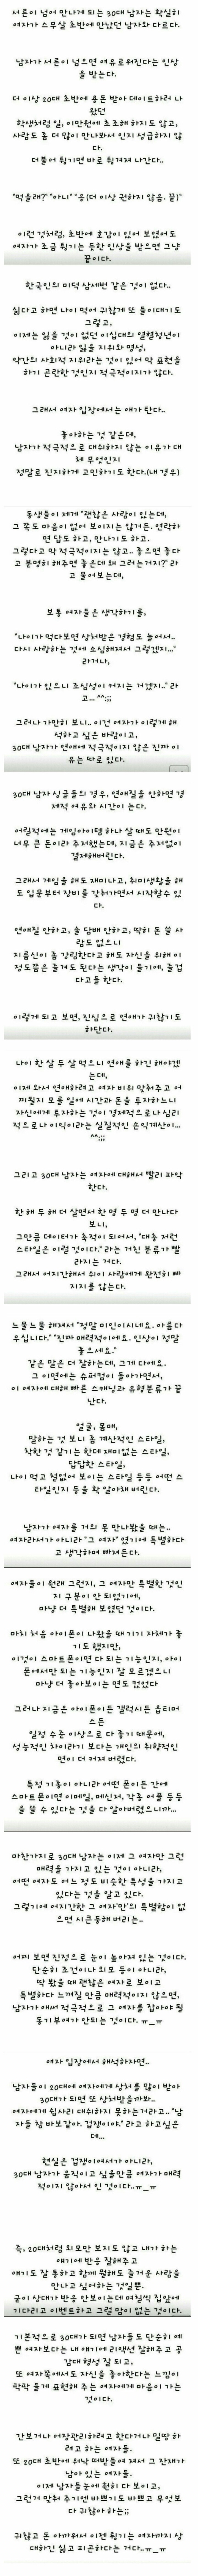 서른이 넘어 만나게 되는 30대 남자는 확실히
여자가 스무살 초반에 만났던 남자와 다르다.
남자가 서른이 넘으면 여유로워진다는 인상
을 받는다.
더 이상 20대 초반에 용돈 받아 데이트하러 나
왔던
학생처럼 일, 이만원에 초조해 하지도 않고,
사람도 좀 더 많이 만나봐서 인지 성급하지 않
다.
더불어 튕기면 바로 튕겨져 나간다..
"먹을래?" "아니" "응(더 이상 권하지 않음. 끝)"
이런 것처럼, 초반에 호감이 있어 보였어도
여자가 조금 튕기는 듯한 인상을 받으면 그냥
끝이다.
한국인의 미덕 삼세번 같은 것이 없다..
싫다고 하면 나이 먹어 귀찮게 또 들이대기도
그렇고,
이제는 잃을 것이 없던 이십대의 열혈청년이
아니라 잃을 지위와 명성,
약간의 사회적 지위라는 것이 있어 막 표현을
하기 곤란한 것인지 적극적이지가 않다.
그래서 여자 입장에서는 애가 탄다..
좋아하는 것 같은데,
남자가 적극적으로 대쉬하지 않는 이유가 대
체 무엇인지
정말로 진지하게 고민하기도 한다.(내 경우)
동생들이 제게 "괜찮은 사람이 있는데,
그 쪽도 마음이 없어 보이지는 않거든. 연락하
면 답도 하고, 만나기도 하고.
그렇다고 막 적극적이지는 않고.. 좋으면 좋다
고 분명히 해주면 좋은데 왜 그러는거지?" 라
고 물어보는데,
보통 여자들은 생각하기를,
"나이가 먹다보면 상처받은 경험도 늘어서..
다시 사랑하는 것에 소심해져서 그렇겠지..."
라거나,
"나이가 있으니 조심성이 커지는 거겠지.." 라
고... ^^;;
그러나 가만히 보니.. 이건 여자가 이렇게 해
석하고 싶은 바람이고,
30대 남자가 연애에 적극적이지 않은 진짜 이
유는 따로 있다.
30대 남자 싱글들의 경우, 연애질을 안하면 경
제적 여유와 시간이 는다.
어릴적에는 게임아이템 하나 살 때도 만원이
너무 큰 돈이라 주저했는데, 지금은 주저없이
결제해버린다.
그래서 게임을 해도 재미나고, 취미생활을 해
도 입문부터 장비를 갖춰가면서 시작할수 있
다.
연애질 안하고, 술 담배 안하고, 딱히 돈 쓸 사
람도 없으니
지름신이 좀 강림한다고 해도 자신을 위해 이
정도쯤은 즐겨도 된다는 생각이 들기에, 즐겁
다고들 한다.
이렇게 되고 보면, 진심으로 연애가 귀찮기도
하단다.
나이 한 살 두 살 먹으니 연애를 하긴 해야겠
는데,
이제 와서 연애하려고 여자 비위 맞춰주고 어
찌될지 모를 일에 시간과 돈을 투자하느니
자신에게 투자하는 것이 경제적으로나 심리
적으로나 이익이라는 실질적인 손익계산이...
^^;;
그리고 30대 남자는 여자에 대해서 빨리 파악
한다.
한 해 두 해 더 살면서 한 명 두 명 더 만나다
보니,
그만큼 데이터가 축적이 되어서, "대충 저런
스타일은 이럴 것이다." 라는 거친 분류가 빨
라지는 거다.
그래서 어지간해서 쉬이 사랑에게 완전히 빠
지지를 않는다.
느물느물 해져서 "정말 미인이시네요. 아름다
우십니다." "진짜 매력적이에요. 인상이 정말
좋으세요."
같은 말은 더 잘하는데, 그게 다에요.
그 이면에는 슈퍼컴이 돌아가면서,
이 여자에 대해 빠른 스캐닝과 유형분류가 끝
난다.
얼굴, 몸매,
말하는 것 보니 좀 계산적인 스타일,
착한 것 같기는 한데 재미없는 스타일,
답답한 스타일,
나이 먹고 철없어 보이는 스타일 등등 어떤 스
타일인지 등을 확 알아채 버린다.
남자가 여자를 거의 못 만나봤을 때는..
여자라서가 아니라 "그 여자" 였기에 특별하다
고 생각하며 빠져든다.
여자들이 원래 그런지, 그 여자만 특별한 것인
지 구분이 안 되었기에,
마냥 더 특별해 보였던 것이다.
마치 처음 아이폰이 나왔을 때 기기 자체가 좋
기도 했지만,
이것이 스마트폰이면 다 되는 기능인지, 아이
폰에서만 되는 기능인지 잘 모르겠으니
마냥 더 좋아보이는 면도 컸었다
그러나 지금은 아이폰이든 갤럭시든 옵티머
스든
일정 수준 이상으로 다 좋기 때문에,
성능적인 차이라기 보다는 개인의 취향적인
면이 더 커져 버렸다.
특정 기종이 아니라 어떤 폰이든 간에
스마트폰이면 이메일, 메신저, 각종 어플 등등
을 쓸 수 있다는 것을 다 알아버렸으니까...
마찬가지로 30대 남자는 이제 그 여자만 그런
매력을 가지고 있는 것이 아니라,
어떤 여자도 어느 정도 비슷한 특성을 가지고
있다는 것을 알고 있다.
그렇기에 어지간한 그 여자'만'의 특별함이 없
으면 시큰둥해 버리는..
어찌 보면 진정으로 눈이 높아져 있는 것이다.
단순히 조건이나 외모 등이 아니라,
딱 봤을 때 괜찮은 여자로 보이고
특별하다 느껴질 만큼 매력적이지 않으면,
남자가 애써 적극적으로 그 여자를 잡아야 될
동기부여가 안되는 것이다. ㅠ_ㅠ
여자 입장에서 해석하자면..
남자들이 20대에 여자에게 상처를 많이 받아
30대가 되면 또 상처받을까봐..
여자에게 쉽사리 대쉬하지 못하는거라고.. "남
자들 참 바보같아. 겁쟁이야." 라고 하고싶은
데...
현실은 겁쟁이여서가 아니라,
30대 남자가 움직이고 싶을만큼 여자가 매력
적이지 않아서 인 것이다..ㅠ_ㅠ
즉, 20대처럼 외모만 보지도 않고 내가 하는
얘기에 반응 잘해주고
얘기도 잘 통하고 함께 뭘해도 즐거운 사람을
만나고 싶어하는 것일뿐.
굳이 상대가 반응 안보이는데 며칠씩 집앞에
기다리고 이벤트하고 그럴 맘이 없는 것이다.
기본적으로 30대가 되면 남자들도 단순히 예
쁜 여자보다는 내 얘기에 리액션 잘해주고 공
감대 형성 잘 되고,
또 여자쪽에서도 자신을 좋아한다는 느낌이
팍팍 들게 표현해 주는 여자에게 마음이 가는
것이다.
간보거나 어장관리하려고 한다거나 밀땅 하
려고 하는 여자들.
또 20대 초반에 워낙 떠받들여 져서 그 잔재가
남아 있는 여자들.
이제 남자들눈에 훤히 다 보이고,
그런거 맞춰 주기엔 바쁘기도 바쁘고 무엇보
다 귀찮아 하는;;
귀찮고 돈 아까워서 이젠 튕기는 여자까지 상
대하긴 싫고 피곤하다는 거다..ㅠ_ㅠ